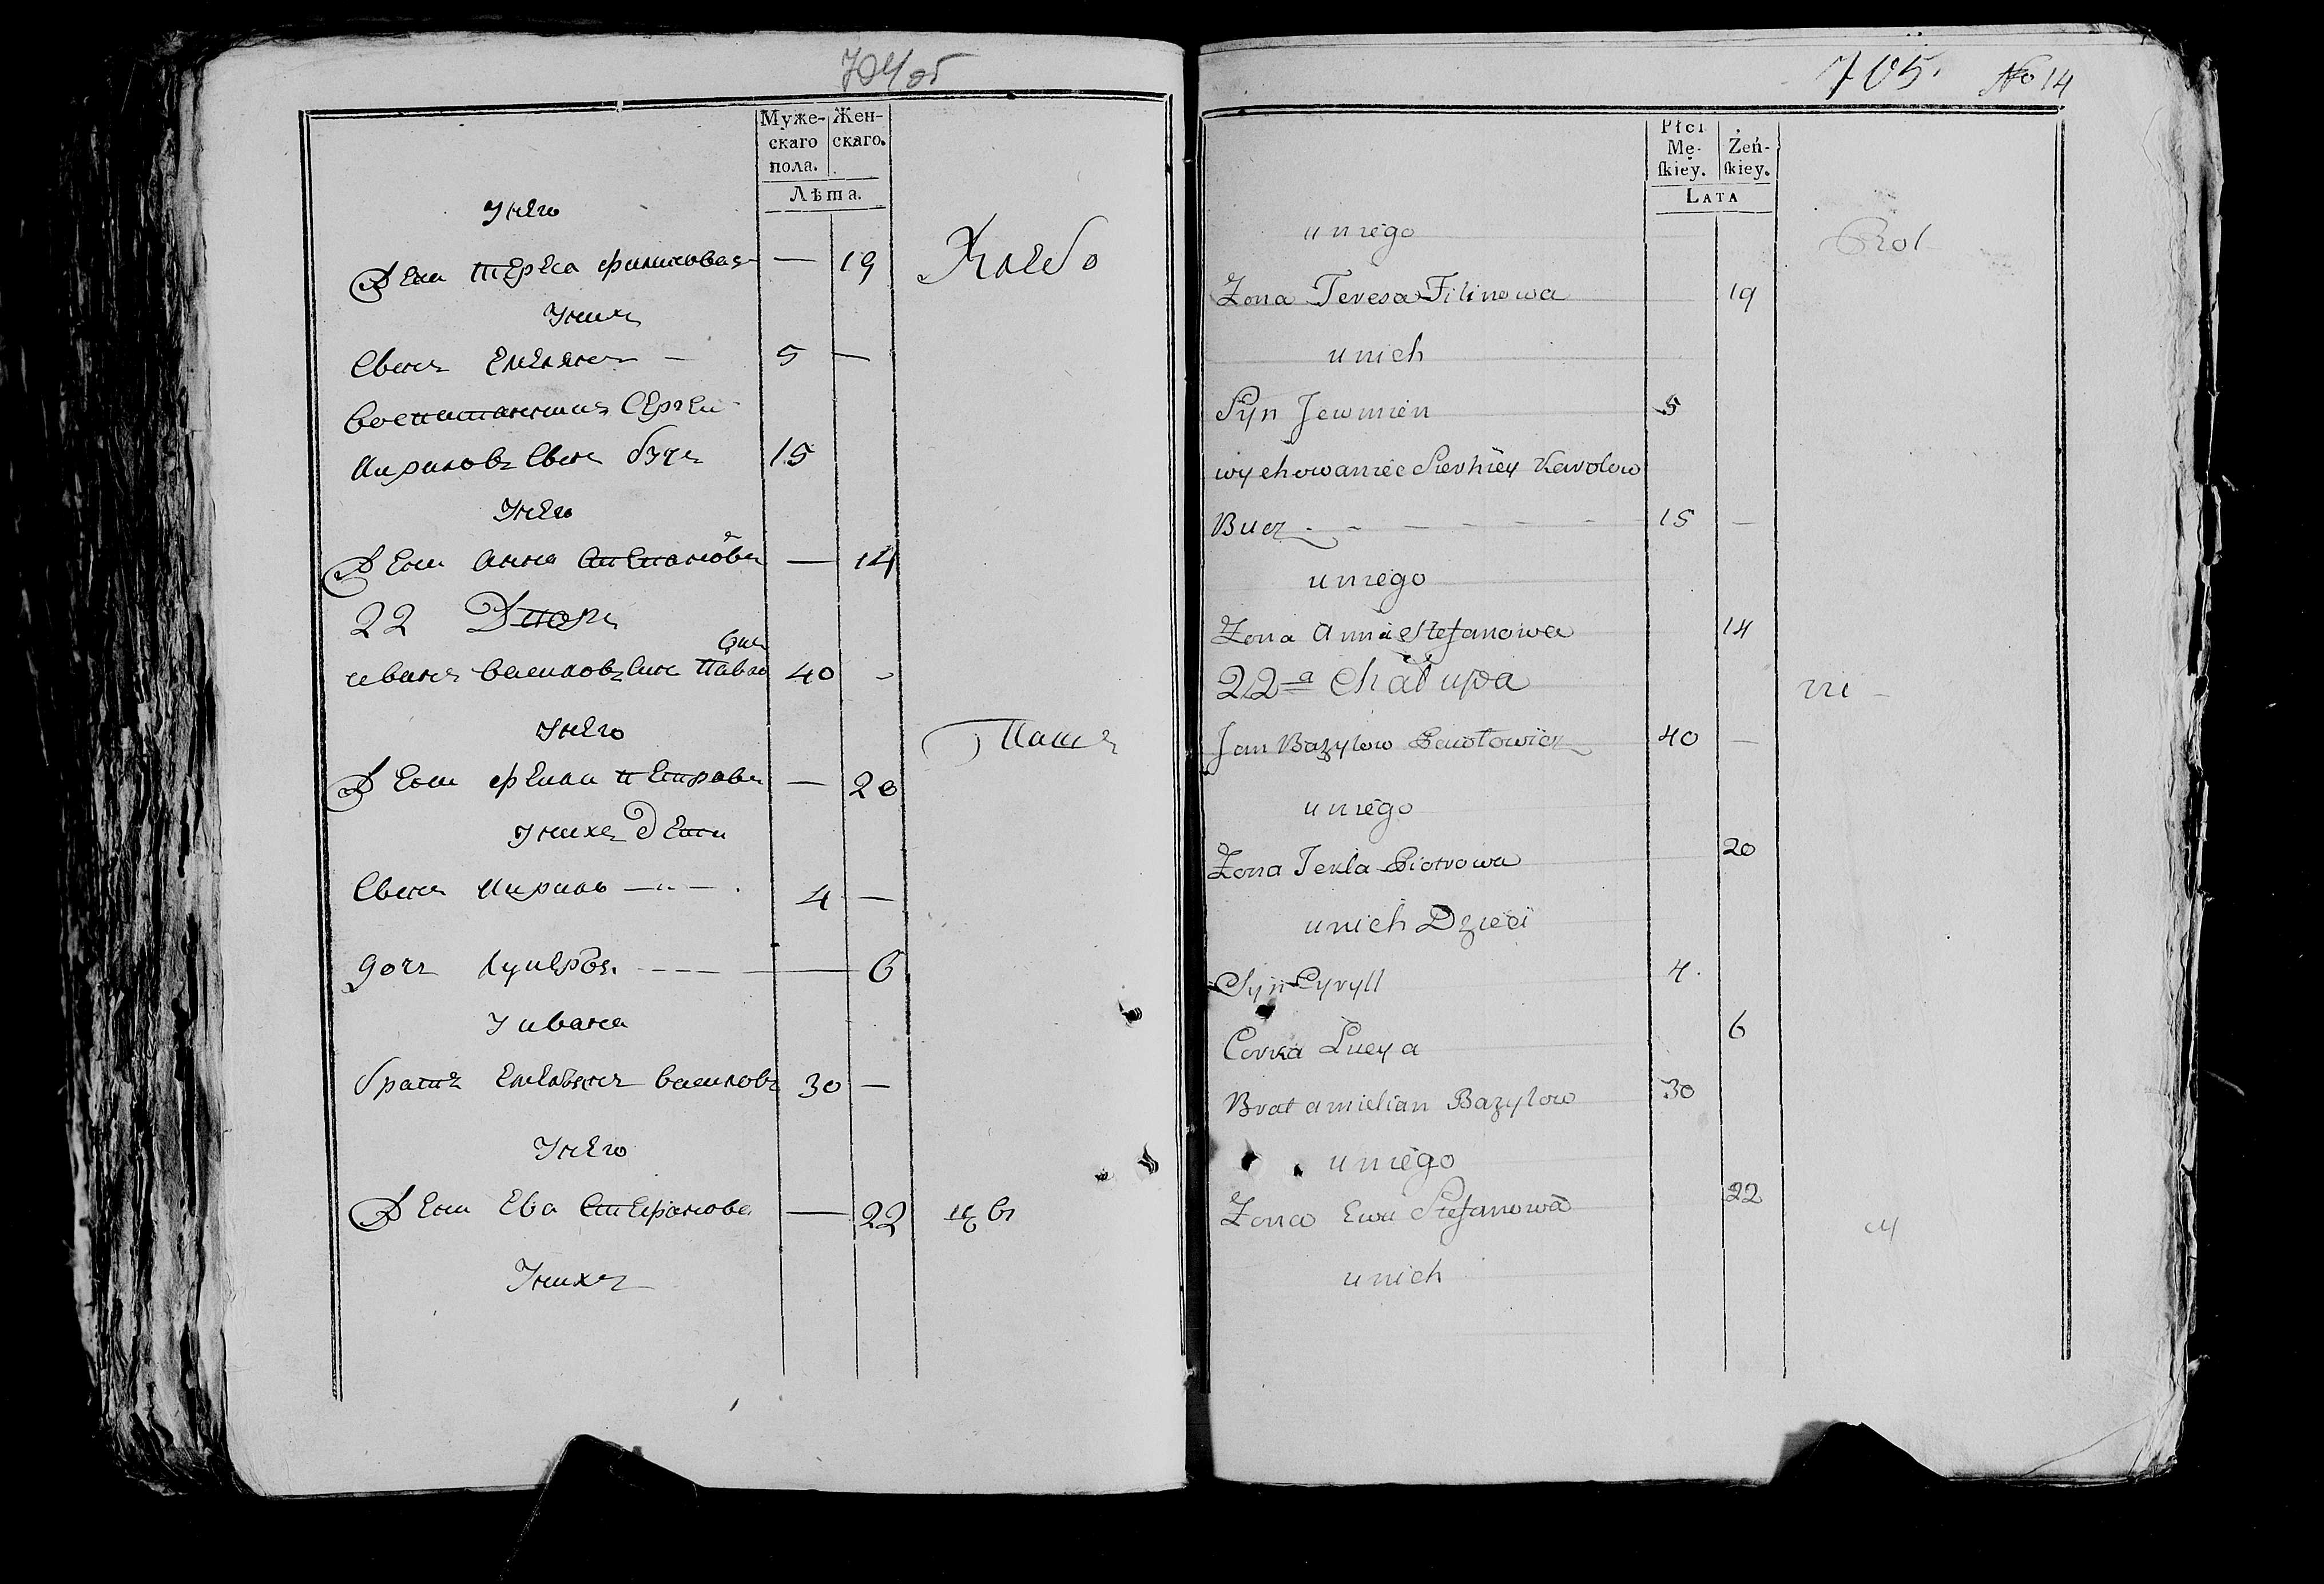 704 об
Муже-
скаго
пола.
Жен-
скаго.
Лѣта.
Унего
Жена Тереса Филипова — 19
Хлебо
Униха
Свинъ Емелянъ — 5 —
Воспитанникъ Сергей
Кириловъ Свинъ Бучъ 15
Унего
Жена Анна Степанова — 14
22 Дворъ
иванъ василовъ Синъ Павло 40 -
Унего
Пашъ
Жена Фекла Петрова — 20
Униха Дети
Свинъ Кирило — 4 —
дочь Лукеря — 6
У ивана
братъ Емельянъ василовъ 30 —
Унего
Жена Ева Стефанова — 22
Униха
705. No 14
Płci
Mę-
ſkiey.
Żeń-
ſkiey.
LATA
u niego
Rol
Zona Teresa Filinowa 19
u nich
Syn Jewmien 5
wychowaniec Serhiey Karolow
Bucz - - - - - - 15 —
u niego
Zona Anna Stefanowa 14
22=a Chałupa
Jan Bazylow Pawłowicz 40 —
u niego
Zona Tekla Piotrowa 20
u nich Dzieci
Syn Cyryll 4.
Corka Łucya 6
Brat Amielian Bazylow 30
u niego
Zona Ewa Stefanowa 22
u nich